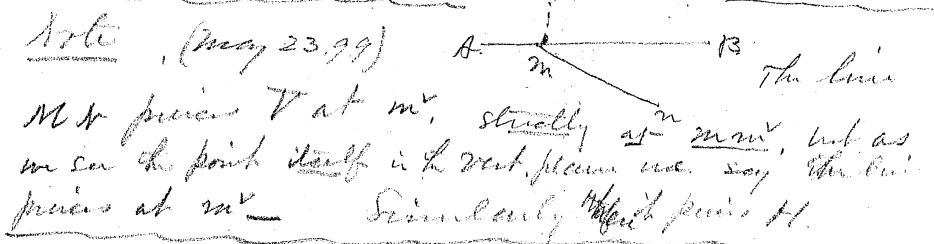 Note, (May 23.99)
A B
m
n
The line
M N pierces V at mᵛ, strictly at mmᵛ, but as
we see the point itself in the vert. plane we say the line
pierces at mᵛ — Similarly where it pierces H.